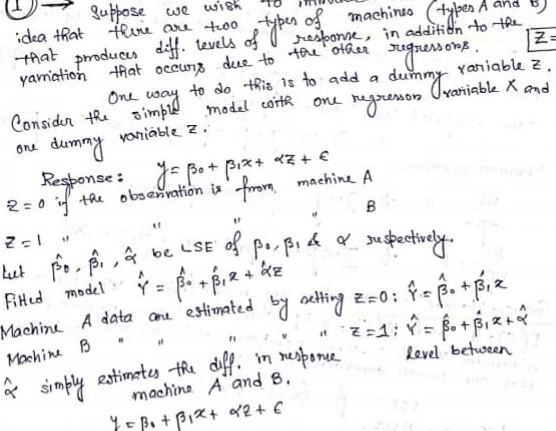 ① → Suppose we wish to
idea that there are two types of machines (types A and B)
that produces diff. levels of response, in addition to the
variation that occurs due to the other regressors. Z=
One way to do this is to add a dummy variable z.
Consider the simple model with one regressor variable X and
one dummy variable z.
Response: y = β₀ + β₁x + αz + ϵ
z = 0 if the observation is from machine A
z = 1 " " " " B
Let β̂₀, β̂₁, α̂ be LSE of β₀, β₁ & α respectively.
Fitted model Ŷ = β̂₀ + β̂₁x + α̂z
Machine A data are estimated by setting z=0: Ŷ = β̂₀ + β̂₁x
Machine B " " " " " z=1: Ŷ = β̂₀ + β̂₁x + α̂
α̂ simply estimates the diff. in response level between
machine A and B.
y = β₀ + β₁x + αz + ϵ